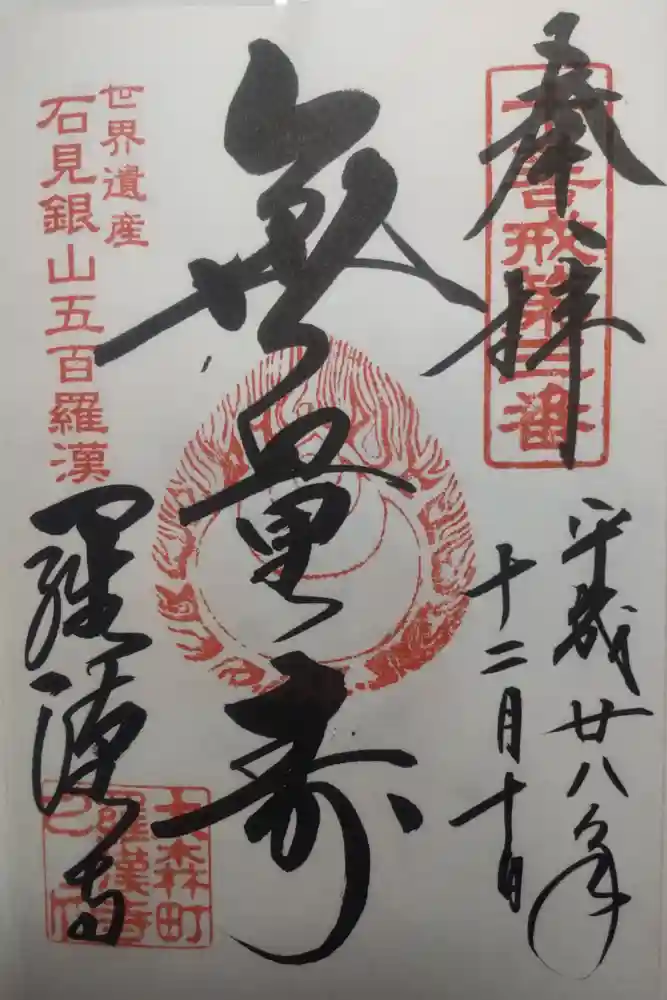 奉拝
善戒第
番
平成廿八年
十二月十日
無量寿
世界遺産
石見銀山五百羅漢
羅漢寺
大森町
羅漢寺